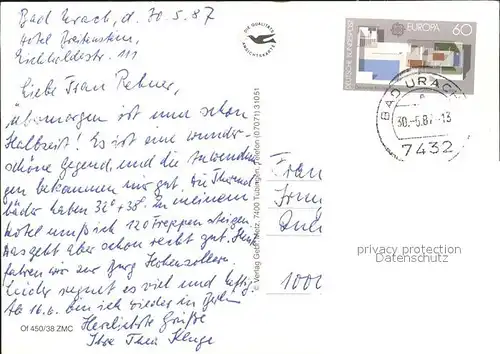 Bad Urach, d. 30.5.87
Hotel Breitenstein,
Eichhaldestr. 111
Liebe Frau
übermorgen ist nun schon
Halbzeit! Es ist eine wunder-
schöne Gegend, und die Anwendun-
gen bekommen mir gut. Die Thermal-
bäder haben 32° + 38°. In meinem
Hotel muß ich 120 Treppen steigen
Das geht aber schon recht gut. Heute
fahren wir zur Burg Hohenzollern.
Leider regnet es viel und heftig.
Ab 16.6. bin ich wieder in Berlin
Herzlichste Grüße
Ihre Thea Kluge
Of 450/38 ZMC
DIE QUALITÄTS
ANSICHTSKARTE
© Verlag Gebr. Metz, 7400 Tübingen, Telefon (07071) 31051
DEUTSCHE BUNDESPOST
EUROPA
60
BAD URACH
30.-5.87-13
7432
Frau
1000
privacy protection
Datenschutz